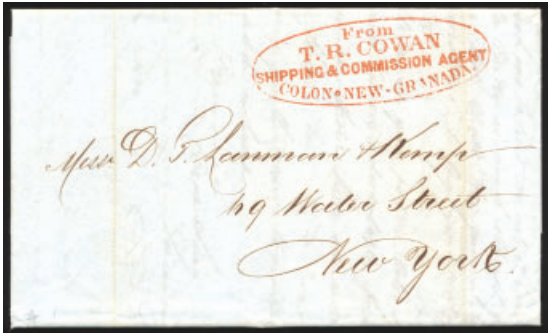 From
T. R. COWAN
SHIPPING & COMMISSION AGENT
COLON • NEW-GRANADA.
Messrs D. T. Lanman & Kemp
69 Water Street
New York.